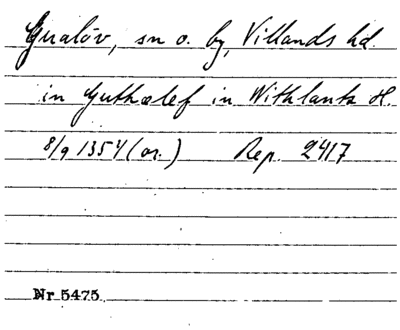 Gualöv, sn o. by, Villands hd.
in Guthælef in Withlants H.
8/9 1354 (or.) Rep. 2417
Nr 5475